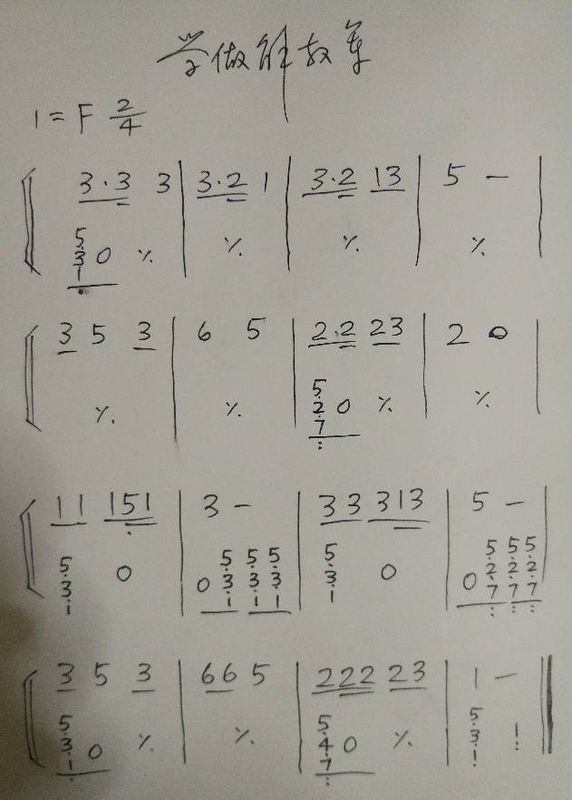 学做解放军
1=F 2/4
3·3 3 | 3·2 1 | 3·2 13 | 5 — |
5 3 1 0 ٪ | ٪ | ٪ | ٪
3 5 3 | 6 5 | 2·2 23 | 2 0 |
٪ | ٪ | 5 2 7 0 ٪ | ٪
11 151 | 3 — | 33 313 | 5 — |
5 3 1 0 | 0 5 3 1 5 3 1 5 3 1 | 5 3 1 0 | 0 5 2 7 5 2 7 5 2 7
3 5 3 | 66 5 | 222 23 | 1 — ‖
5 3 1 0 ٪ | ٪ | 5 4 7 0 ٪ | 5 3 1 1